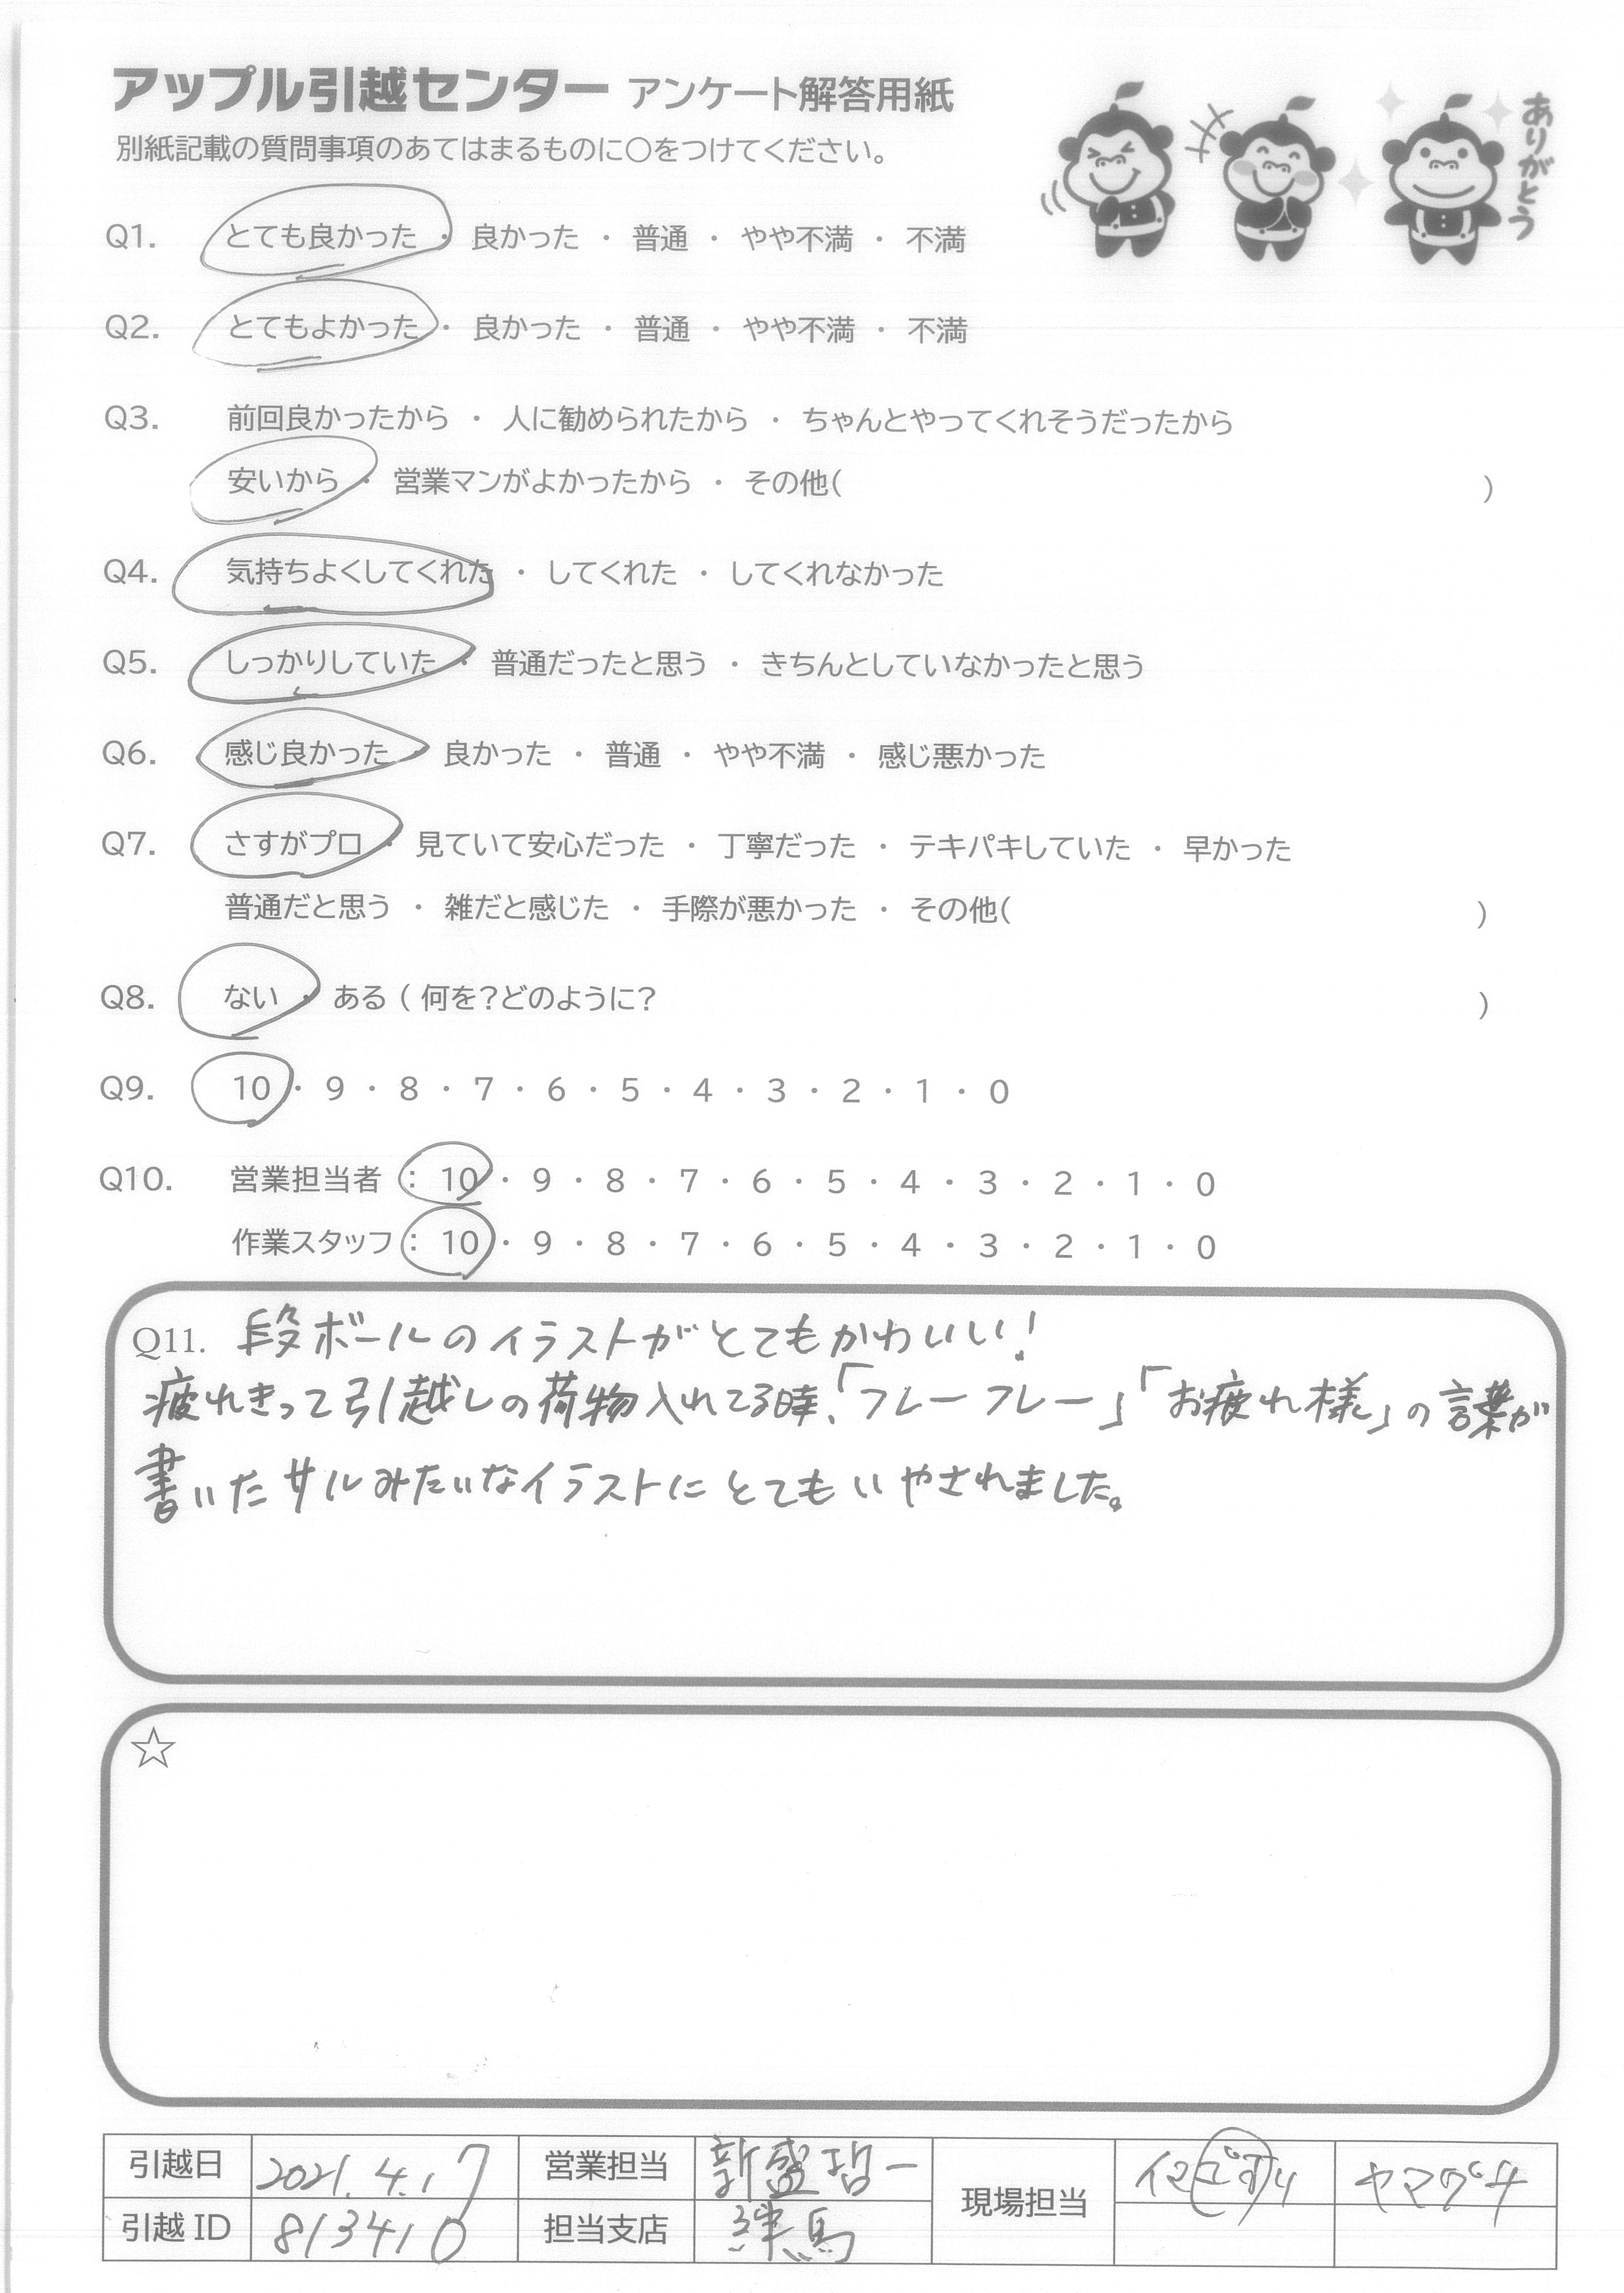 アップル引越センター アンケート解答用紙
別紙記載の質問事項のあてはまるものに〇をつけてください。
ありがとう
Q1. とても良かった ・ 良かった ・ 普通 ・ やや不満 ・ 不満
Q2. とてもよかった ・ 良かった ・ 普通 ・ やや不満 ・ 不満
Q3. 前回良かったから ・ 人に勧められたから ・ ちゃんとやってくれそうだったから
安いから ・ 営業マンがよかったから ・ その他( )
Q4. 気持ちよくしてくれた ・ してくれた ・ してくれなかった
Q5. しっかりしていた ・ 普通だったと思う ・ きちんとしていなかったと思う
Q6. 感じ良かった ・ 良かった ・ 普通 ・ やや不満 ・ 感じ悪かった
Q7. さすがプロ ・ 見ていて安心だった ・ 丁寧だった ・ テキパキしていた ・ 早かった
普通だと思う ・ 雑だと感じた ・ 手際が悪かった ・ その他( )
Q8. ない ・ ある ( 何を?どのように? )
Q9. 10 ・ 9 ・ 8 ・ 7 ・ 6 ・ 5 ・ 4 ・ 3 ・ 2 ・ 1 ・ 0
Q10. 営業担当者 : 10 ・ 9 ・ 8 ・ 7 ・ 6 ・ 5 ・ 4 ・ 3 ・ 2 ・ 1 ・ 0
作業スタッフ : 10 ・ 9 ・ 8 ・ 7 ・ 6 ・ 5 ・ 4 ・ 3 ・ 2 ・ 1 ・ 0
Q11. 段ボールのイラストがとてもかわいい!
疲れきって引越しの荷物入れてる時、「フレーフレー」「お疲れ様」の言葉が
書いたサルみたいなイラストにとてもいやされました。
☆
引越日 2021.4.17 営業担当 新盛 一 現場担当 ヤマグチ
引越 ID 813410 担当支店 練馬